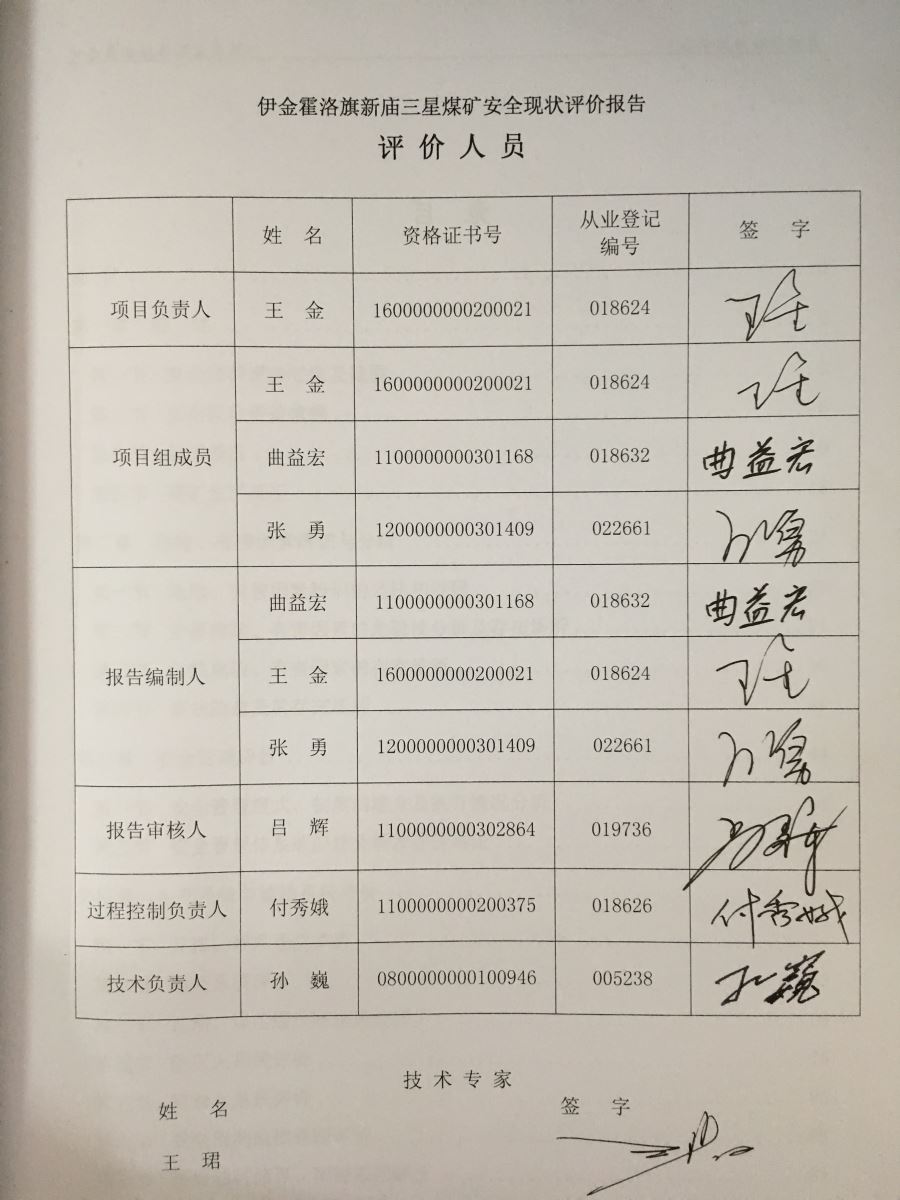 伊金霍洛旗新庙三星煤矿安全现状评价报告
评价人员
姓 名 资格证书号 从业登记编号 签 字
项目负责人 王 金 1600000000200021 018624 王金
项目组成员 王 金 1600000000200021 018624 王金
曲益宏 1100000000301168 018632 曲益宏
张 勇 1200000000301409 022661 张勇
报告编制人 曲益宏 1100000000301168 018632 曲益宏
王 金 1600000000200021 018624 王金
张 勇 1200000000301409 022661 张勇
报告审核人 吕 辉 1100000000302864 019736 吕辉
过程控制负责人 付秀娥 1100000000200375 018626 付秀娥
技术负责人 孙 巍 0800000000100946 005238 孙巍
技术专家
姓 名 签 字
王 珺